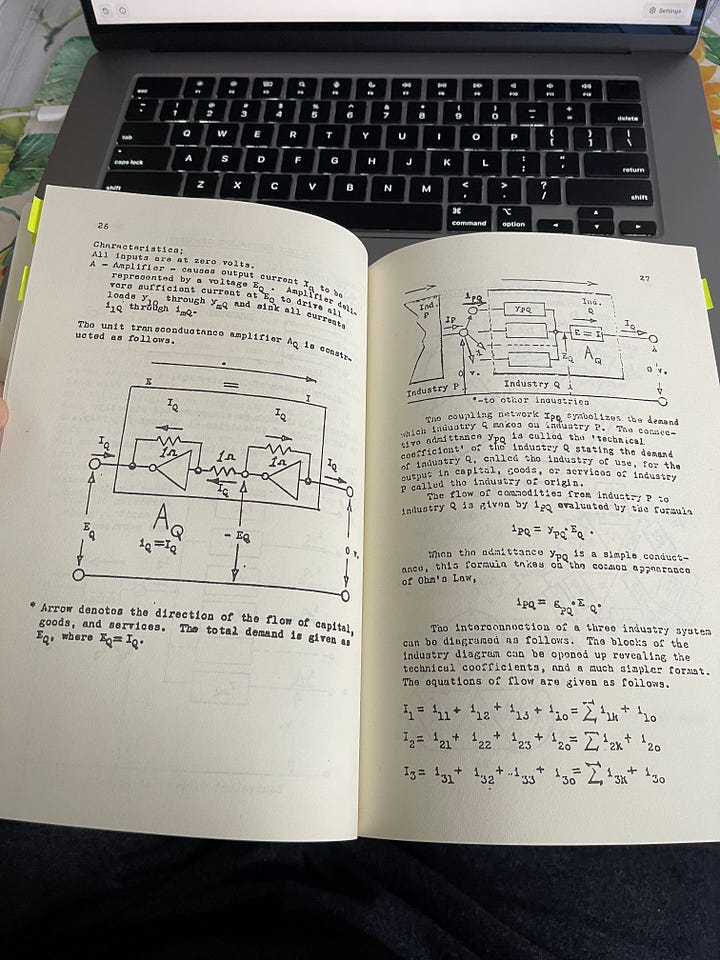 Settings
esc
delete
tab
Q W E R T Y U I O P
caps lock
A S D F G H J K L
return
shift
Z X C V B N M
shift
command
option
26
Characteristics;
All inputs are at zero volts.
A - Amplifier - causes output current I_Q to be
represented by a voltage E_Q. Amplifier deli-
vers sufficient current at E_Q to drive all
loads y through y_mQ and sink all currents
i_1Q through i_mQ.
The unit transconductance amplifier A_Q is constr-
ucted as follows.
E = I
I_Q I_Q
I_Q 1Ω 1Ω 1Ω I_Q
I_Q
E_Q
A_Q
i_Q=I_Q
- E_Q
0 v.
* Arrow denotes the direction of the flow of capital,
goods, and services. The total demand is given as
E_Q, where E_Q= I_Q.
27
Ind. P
i_PQ
y_PQ
Ind. Q
IP
E = I
I_Q
A_Q
0 v.
0 v.
Industry P
Industry Q
*-to other industries
The coupling network I_PQ symbolizes the demand
which industry Q makes on industry P. The connec-
tive admittance y_PQ is called the 'technical
coefficient' of the industry Q stating the demand
of industry Q, called the industry of use, for the
output in capital, goods, or services of industry
P called the industry of origin.
The flow of commodities from industry P to
industry Q is given by i_PQ evaluated by the formula
i_PQ = y_PQ·E_Q .
When the admittance y_PQ is a simple conduct-
ance, this formula takes on the common appearance
of Ohm's Law,
i_PQ = g_PQ·E_Q.
The interconnection of a three industry system
can be diagramed as follows. The blocks of the
industry diagram can be opened up revealing the
technical coefficients, and a much simpler format.
The equations of flow are given as follows.
I_1 = i_11 + i_12 + i_13 + i_10 = Σ i_1k + i_10
I_2 = i_21 + i_22 + i_23 + i_20 = Σ i_2k + i_20
I_3 = i_31 + i_32 + i_33 + i_30 = Σ i_3k + i_30